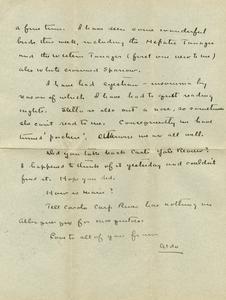 a fine time. I have seen some wonderful
birds this week, including the Hepatic Tanager
and the Western Tanager (first one new to me)
also white crowned Sparrow.
I have had eyestrain - insomnia by
reason of which I have had to quit reading
nights. Stella is also out a nose, so sometimes
she can't read to me. Consequently we have
turned "pochers". Otherwise we are all well.
Did you take back Carl's Yale Review?
I happened to think of it yesterday and couldn't
find it. Hope you did.
How is Marie?
Tell Carl Carp River has nothing on
Albuquerque for mosquitos.
Love to all of you from
Aldo